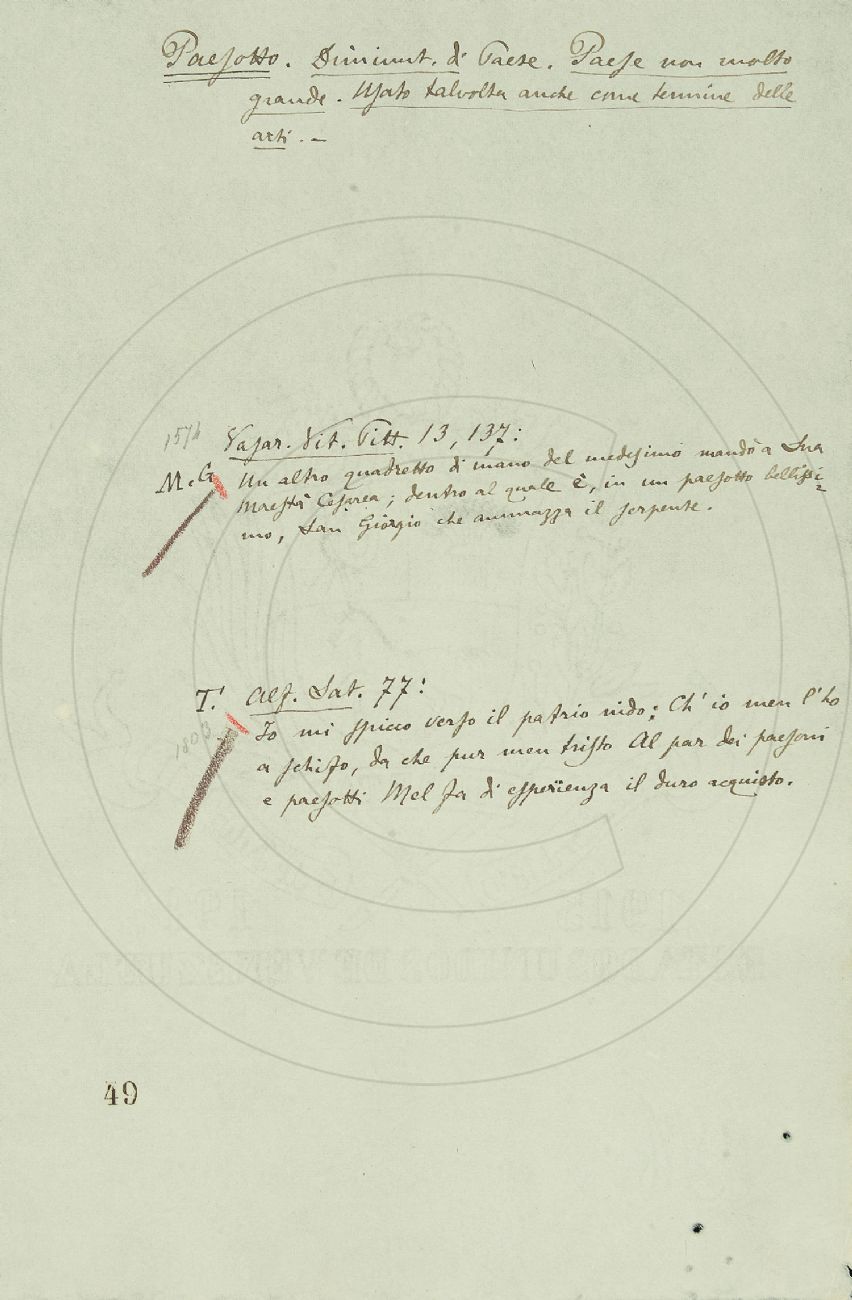 Paesotto. Diminut. di Paese. Paese non molto
grande. Usato talvolta anche come termine delle
arti. –
Vasar. Vit. Pitt. 13, 137:
M. G. Un altro quadretto di mano del medesimo mandò a Sua
Maestà Cesarea; dentro al quale è, in un paesotto bellissi-
mo, San Giorgio che ammazza il serpente.
T. Alf. Sat. 77:
Io mi spicco verso il patrio nido; Ch' io men l' ho
a schifo, da che pur men tristo Al par dei paesoni
e paesotti Mel fa di esperïenza il duro acquisto.
49